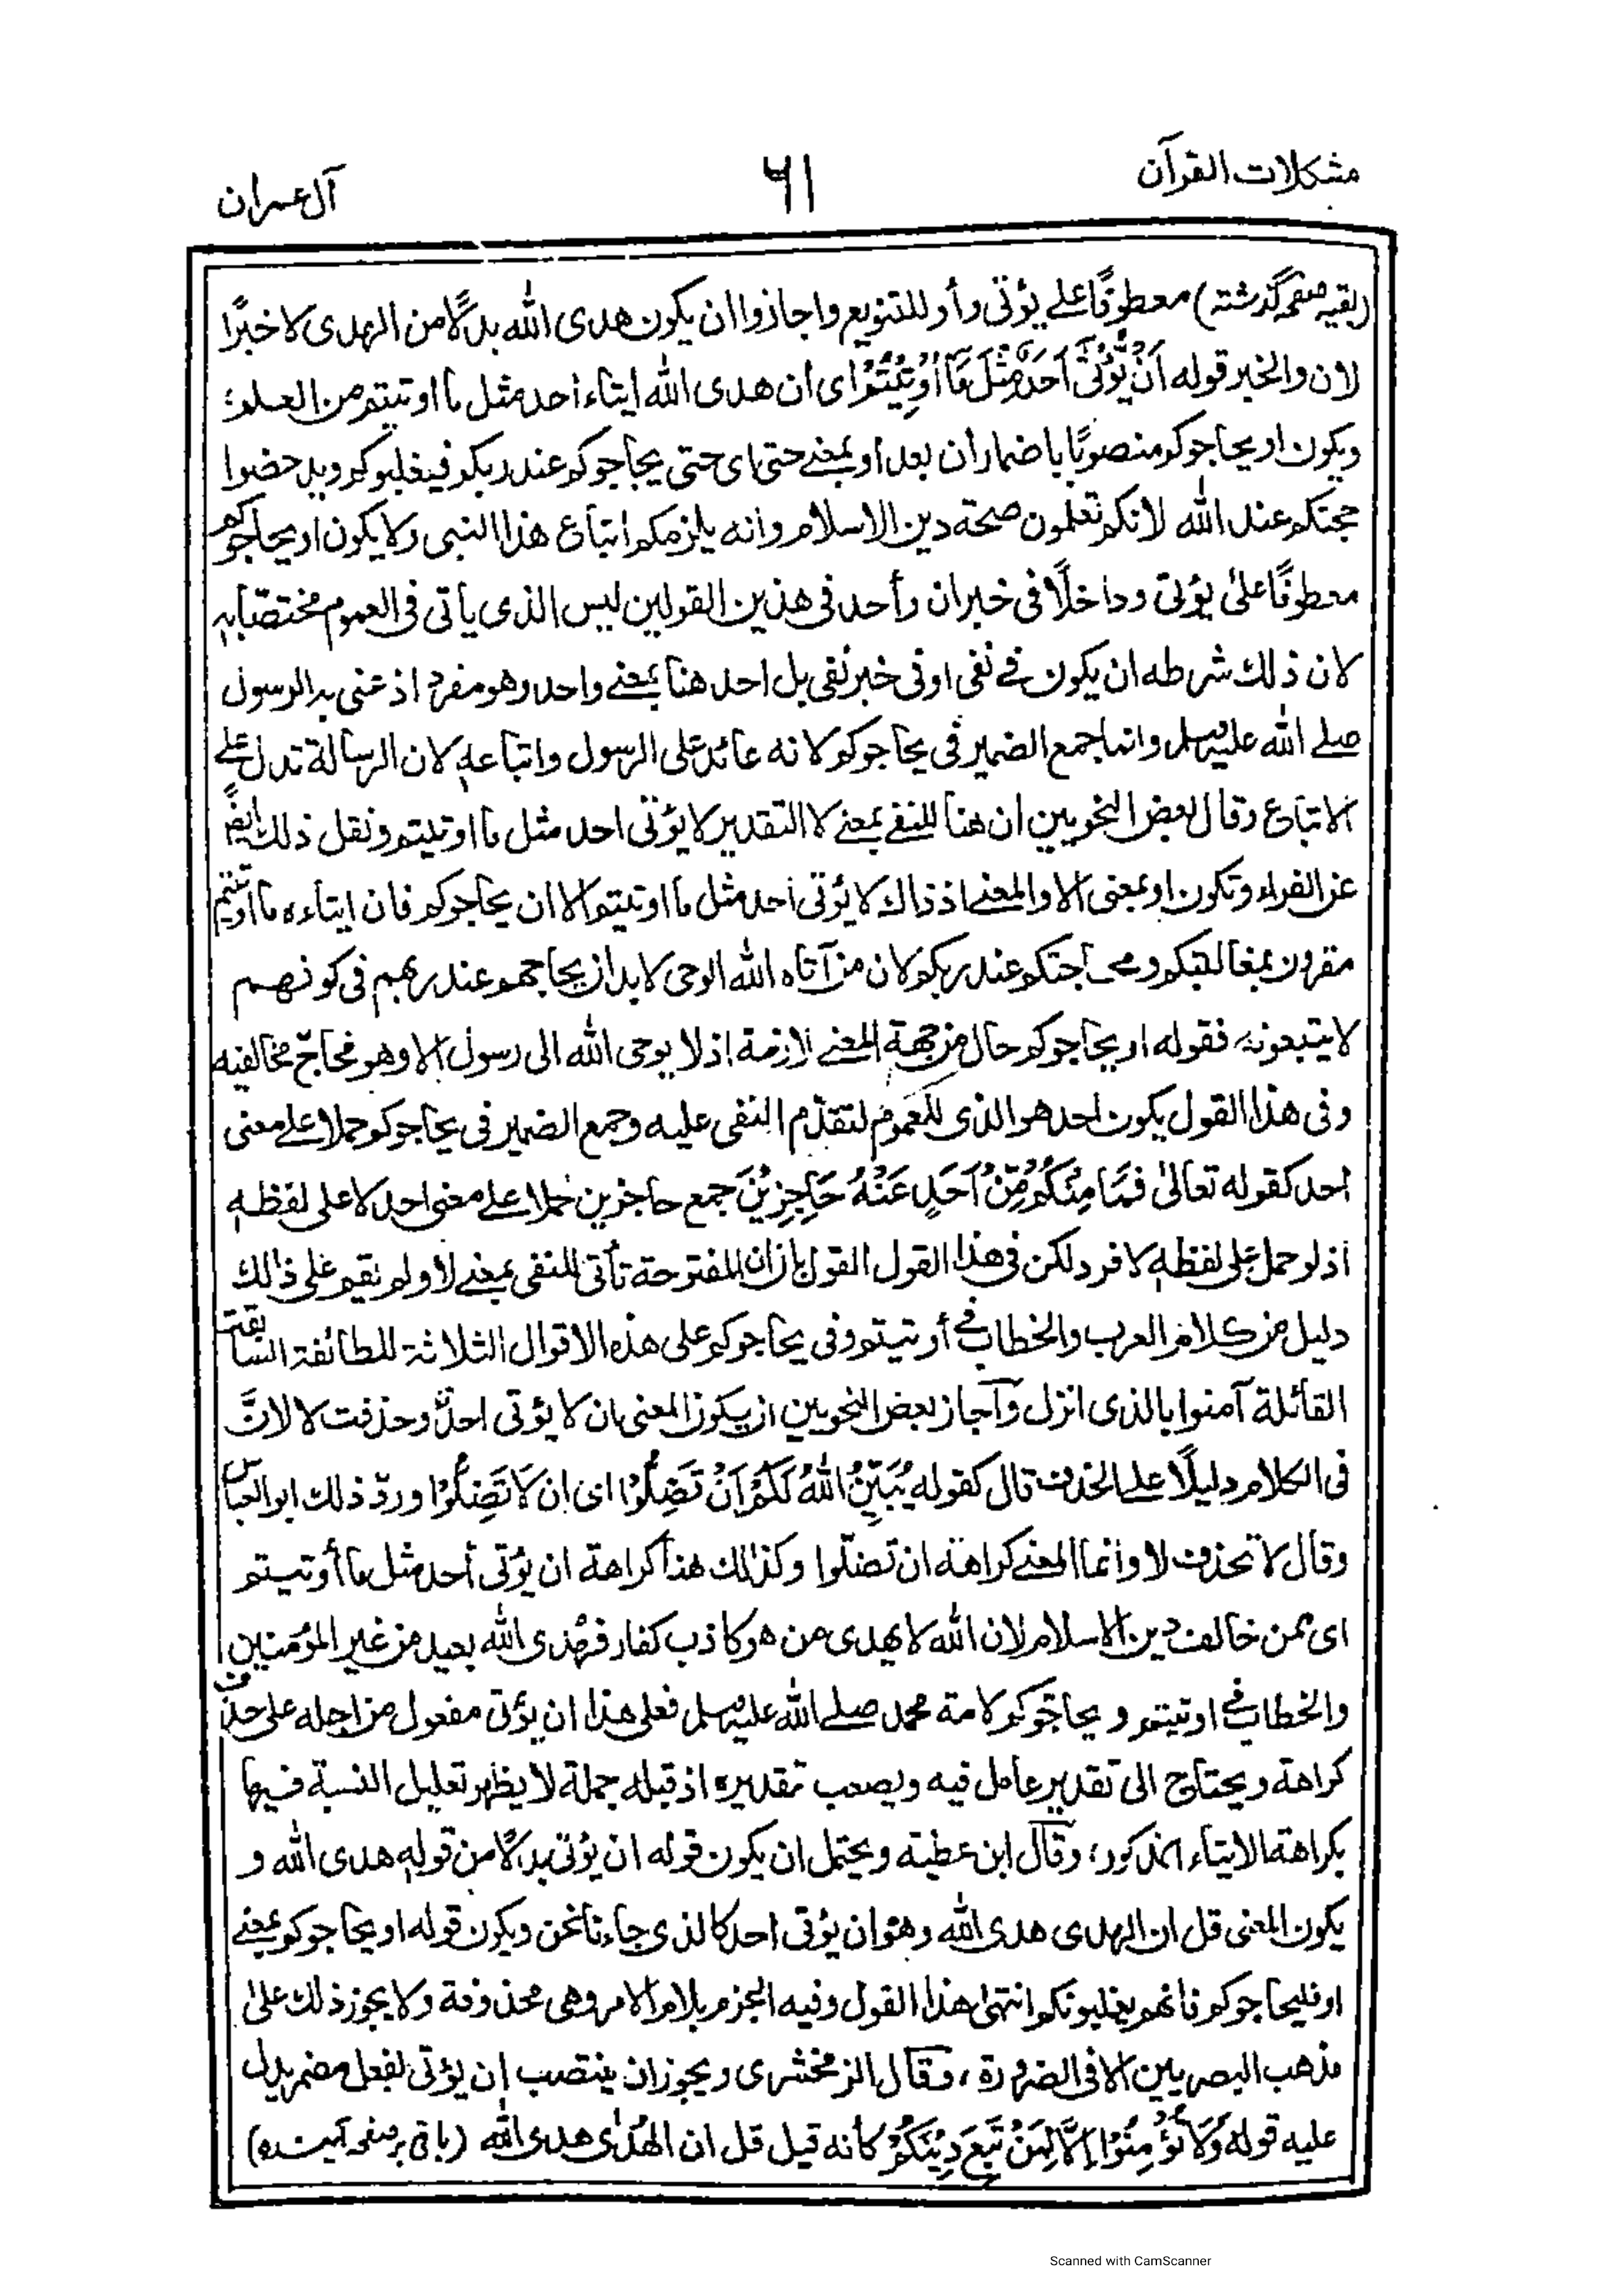 مشکلات القرآن
۶۱
آل عمران
(بقیہ صفحہ گذشتہ) معطوفًا علی یؤتی وأو للتنویع واجازوا ان یکون هدی الله بدلًا من الهدی لا خبرًا
لان والخبر قوله اَنْ یُّؤْتٰۤی اَحَدٌ مِّثْلَ مَاۤ اُوْتِیْتُمْ ای ان هدی الله ایتاء احد مثل ما اوتیتم من العلم؛
ویکون او یحاجوکم منصوبًا باضمار ان بعد او بمعنے حتی ای حتی یحاجوکم عند ربکم فیغلبوکم ویدحضوا
حجتکم عند الله لانکم تعلمون صحة دین الاسلام وانه یلزمکم اتباع هذا النبی ولا یکون او یحاجوکم
معطوفًا علیٰ یؤتی وداخلًا فی خبر ان وأحد فی هذین القولین لیس الذی یأتی فی العموم مختصًا به
لان ذلك شرطه ان یکون فے نفی او فی خبر نفی بل احد هنا بمعنے واحد وهو مفرد اذ عنی به الرسول
صلے الله علیہ وسلم وانما جمع الضمیر فی یحاجوکم لانه عائد علی الرسول واتباعه لان الرسالة تدل علے
الاتباع وقال بعض النحویین ان هنا للنفے بمعنے لا التقدیر لا یؤتی احد مثل ما اوتیتم ونقل ذلك ایضًا
عن الفراء وتکون او بمعنی الا والمعنے اذ ذاك لا یؤتی احد مثل ما اوتیتم الا ان یحاجوکم فان ایتاءه ما اوتیتم
مقرون بمغالبتکم ومحاجتکم عند ربکم لان من آتاه الله الوحی لا بد ان یحاجهم عند ربهم فی کونهم
لا یتبعونه فقوله او یحاجوکم حال من جهة المعنے لازمة اذ لا یوحی الله الی رسول الا وهو محاجّ مخالفیه
وفی هذا القول یکون احد هو الذی للعموم لتقدّم النفی علیه وجمع الضمیر فی یحاجوکم حملا علے معنی
احد کقوله تعالیٰ فَمَا مِنْكُمْ مِّنْ اَحَدٍ عَنْهُ حَاجِزِیْنَ جمع حاجزین حملا علے معنی احد لا علی لفظه
اذ لو حمل علی لفظه لافرد لکن فی هذا القول القول بان ان المفتوحة تأتی للنفی بمعنے لا ولم یقم علی ذالك
دلیل من کلام العرب والخطاب فے أوتیتم وفی یحاجوکم علی هذه الاقوال الثلاثة للطائفة السابقة
القائلة آمنوا بالذی انزل وأجاز بعض النحویین ان یکون المعنی ان لا یؤتی احدٌ وحذفت لا لانّ
فی الکلام دلیلًا علی الحذف قال کقوله یُبَیِّنُ اللّٰهُ لَكُمْ اَنْ تَضِلُّوْا ای ان لَا تَضِلُّوْا وردّ ذلك ابو العباس
وقال لا تحذف لا وانما المعنے کراهة ان تضلّوا وکذالك هذا کراهة ان یؤتی أحد مثل ما أوتیتم
ای ممن خالف دین الاسلام لان الله لا یهدی من هو کاذب کفار فهُدی الله بعید من غیر المؤمنین
والخطاب فے اوتیتم و یحاجّوکم لامة محمد صلے الله علیہ وسلم فعلی هذا ان یؤتی مفعول من اجله علی حذف
کراهة ویحتاج الی تقدیر عامل فیه ویصعب تقدیره اذ قبله جملة لا یظهر تعلیل النسبة فیها
بکراهة الایتاء المذکور، وقال ابن عطیة ویحتمل ان یکون قوله ان یؤتی بدلًا من قوله هدی الله و
یکون المعنی قل ان الهدی هدی الله وهو ان یؤتی احد کالذی جاءنا نحن ویکون قوله او یحاجوکم بمعنے
او فلیحاجوکم فانهم یغلبونکم انتهیٰ هذا القول وفیه الجزم بلام الامر وهی محذوفة ولا یجوز ذلك علیٰ
مذهب البصریین الا فی الضرورة، وقال الزمخشری ویجوز ان ینتصب ان یؤتی بفعل مضمر یدل
علیه قوله وَلَا تُؤْمِنُوْۤا اِلَّا لِمَنْ تَبِعَ دِیْنَكُمْ کأنه قیل قل ان الهُدٰی هدی الله (باقی بر صفحہ آئندہ)
Scanned with CamScanner